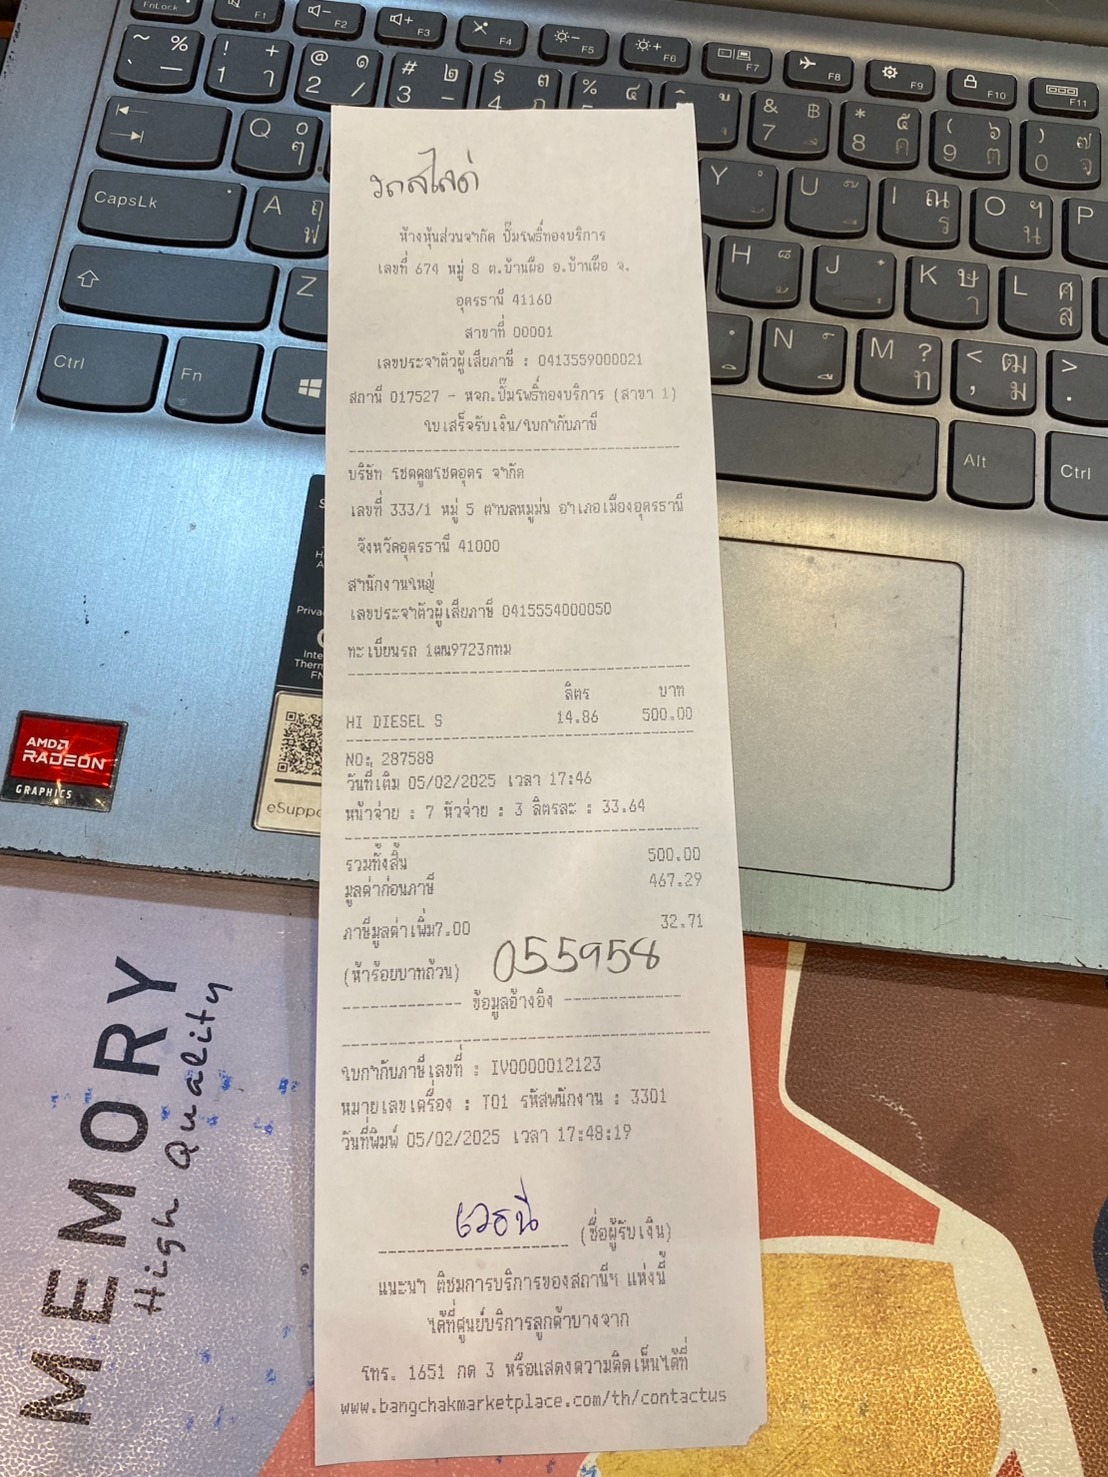 รถสไลด์
ห้างหุ้นส่วนจำกัด ปั๊มโพธิ์ทองบริการ
เลขที่ 674 หมู่ 8 ต.บ้านผือ อ.บ้านผือ จ.
อุดรธานี 41160
สาขาที่ 00001
เลขประจำตัวผู้เสียภาษี : 0413559000021
สถานี 017527 - หจก.ปั๊มโพธิ์ทองบริการ (สาขา 1)
ใบเสร็จรับเงิน/ใบกำกับภาษี
บริษัท โชคคูณโชคอุดร จำกัด
เลขที่ 333/1 หมู่ 5 ตำบลหมูม่น อำเภอเมืองอุดรธานี
จังหวัดอุดรธานี 41000
สำนักงานใหญ่
เลขประจำตัวผู้เสียภาษี 0415554000050
ทะเบียนรถ 1ฒน9723กทม
ลิตร บาท
HI DIESEL S 14.86 500.00
NO: 287588
วันที่เติม 05/02/2025 เวลา 17:46
หน้าจ่าย : 7 หัวจ่าย : 3 ลิตรละ : 33.64
รวมทั้งสิ้น 500.00
มูลค่าก่อนภาษี 467.29
ภาษีมูลค่าเพิ่ม7.00 32.71
(ห้าร้อยบาทถ้วน) 055958
ข้อมูลอ้างอิง
ใบกำกับภาษีเลขที่ : IV0000012123
หมายเลขเครื่อง : T01 รหัสพนักงาน : 3301
วันที่พิมพ์ 05/02/2025 เวลา 17:48:19
(ชื่อผู้รับเงิน)
แนะนำ ติชมการบริการของสถานีฯ แห่งนี้
ได้ที่ศูนย์บริการลูกค้าบางจาก
โทร. 1651 กด 3 หรือแสดงความคิดเห็นได้ที่
www.bangchakmarketplace.com/th/contactus
AMD
RADEON
GRAPHICS
MEMORY
High Quality
CapsLk
Ctrl
Fn
Alt
Ctrl